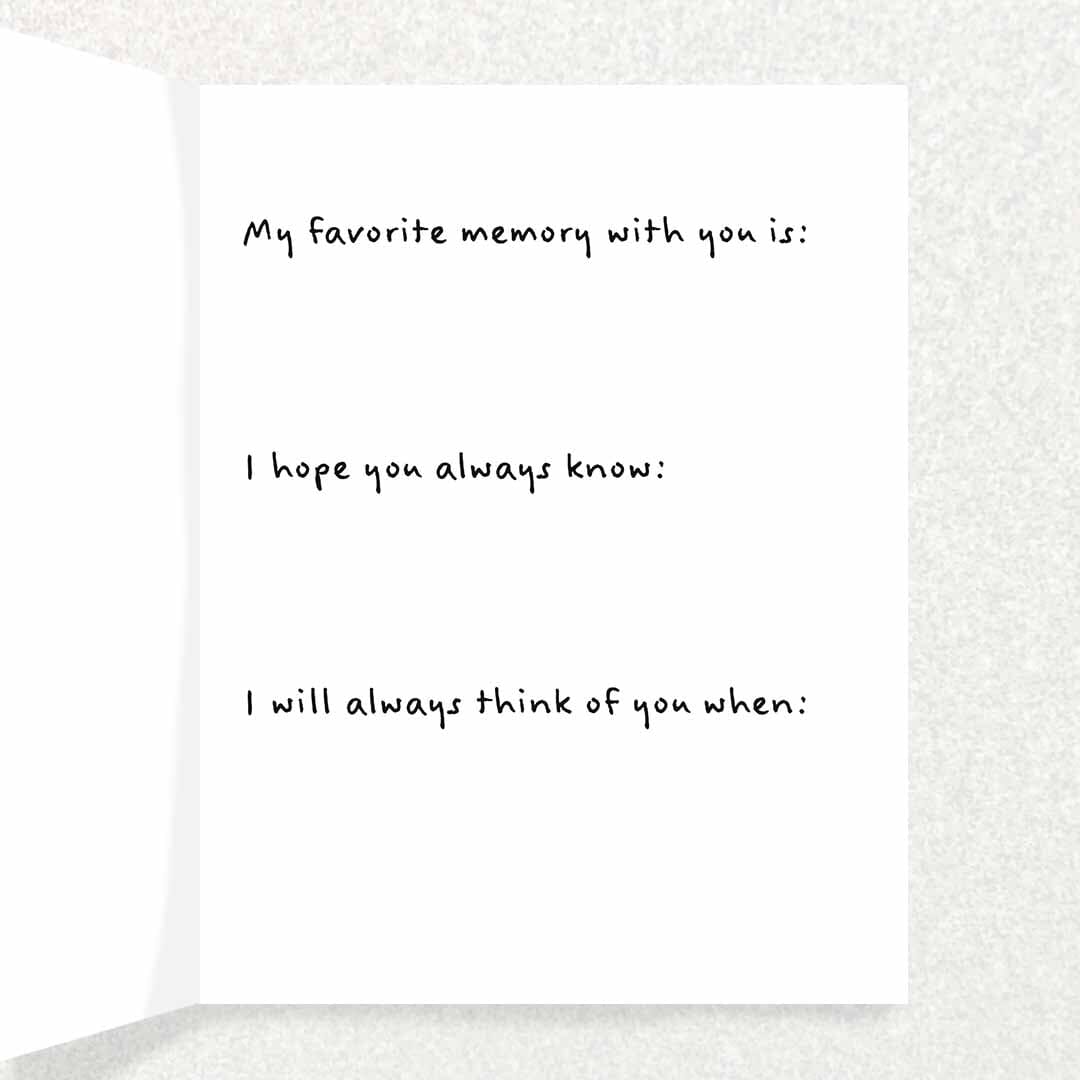 My favorite memory with you is:
I hope you always know:
I will always think of you when: